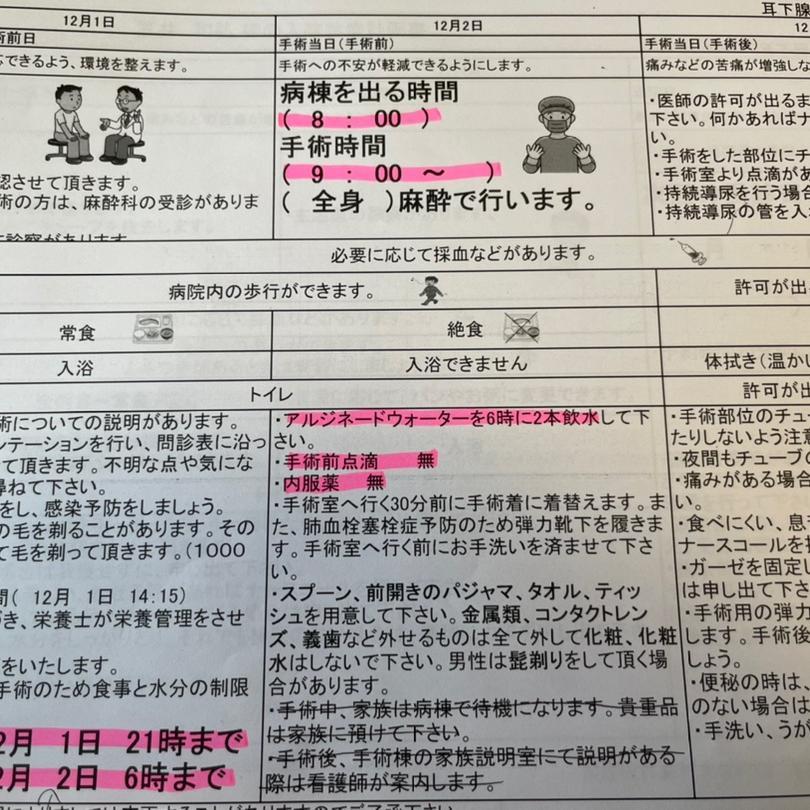 耳下腺
12月1日
12月2日
12
術前日
手術当日(手術前)
手術当日(手術後)
できるよう、環境を整えます。
手術への不安が軽減できるようにします。
痛みなどの苦痛が増強しな
病棟を出る時間
( 8 : 00 )
手術時間
( 9 : 00 ～ )
( 全身 )麻酔で行います。
認させて頂きます。
術の方は、麻酔科の受診がありま
・医師の許可が出るま
下さい。何かあればナ
い。
・手術をした部位にチ
・手術室より点滴があ
・持続導尿を行う場合
・持続導尿の管を入
必要に応じて採血などがあります。
病院内の歩行ができます。
許可が出
常食
絶食
入浴
入浴できません
体拭き(温かい
トイレ
許可が出
術についての説明があります。
ンテーションを行い、問診表に沿っ
て頂きます。不明な点や気にな
尋ねて下さい。
をし、感染予防をしましょう。
の毛を剃ることがあります。その
て毛を剃って頂きます。(1000
間( 12月 1日 14:15)
づき、栄養士が栄養管理をさせ
をいたします。
手術のため食事と水分の制限
2月 1日 21時まで
2月 2日 6時まで
・アルジネードウォーターを6時に2本飲水して下
さい。
・手術前点滴 無
・内服薬 無
・手術室へ行く30分前に手術着に着替えます。ま
た、肺血栓塞栓症予防のため弾力靴下を履きま
す。手術室へ行く前にお手洗いを済ませて下さ
い。
・スプーン、前開きのパジャマ、タオル、ティッ
シュを用意して下さい。金属類、コンタクトレン
ズ、義歯など外せるものは全て外して化粧、化粧
水はしないで下さい。男性は髭剃りをして頂く場
合があります。
・手術中、家族は病棟で待機になります。貴重品
は家族に預けて下さい。
・手術後、手術棟の家族説明室にて説明がある
際は看護師が案内します。
・手術部位のチュー
たりしないよう注意
・夜間もチューブの
・痛みがある場合
い。
・食べにくい、息
ナースコールを押
・ガーゼを固定し
は申し出て下さ
・手術用の弾力
します。手術後
しょう。
・便秘の時は、
のない場合は
・手洗い、うが